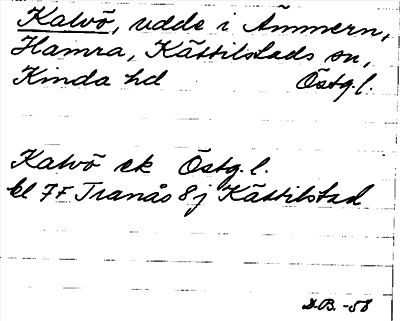 Kalvö, udde i Ämmern,
Hamra, Kättilstads sn,
Kinda hd Östg.l.
Kalvö ek Östg.l.
bl 7F Tranås 8j Kättilstad
D.B. -58